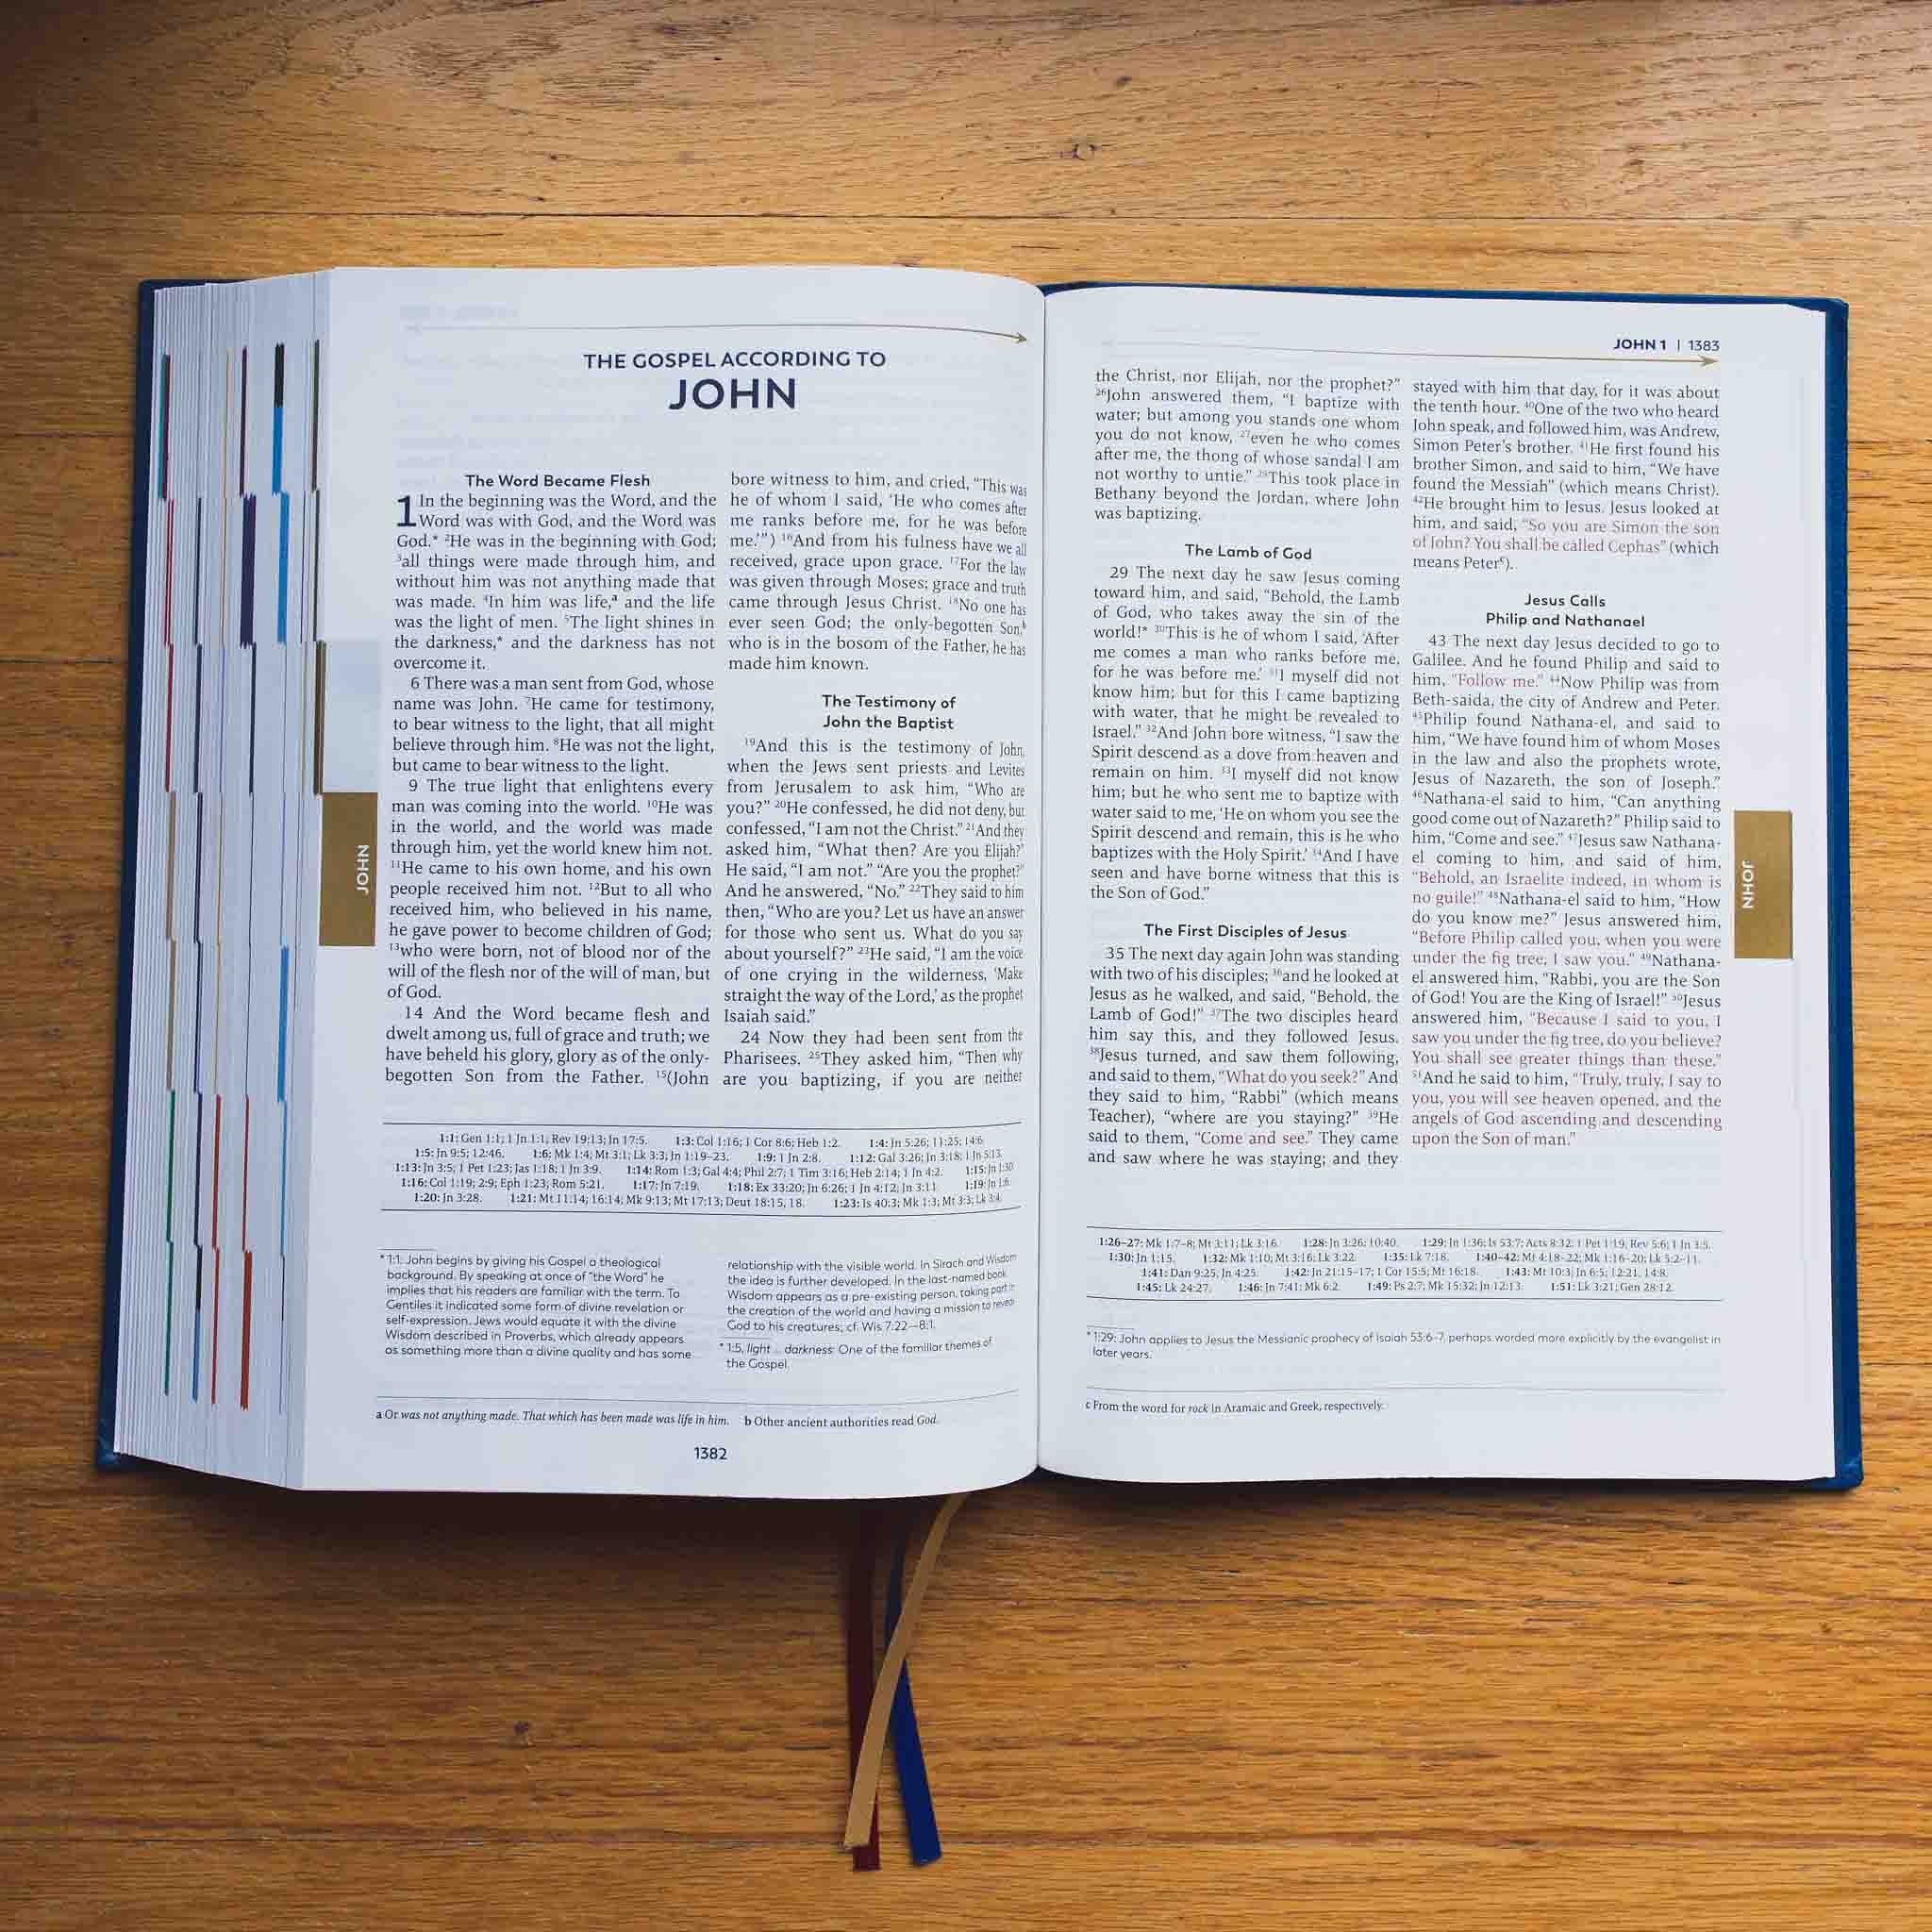 THE GOSPEL ACCORDING TO
JOHN
The Word Became Flesh
1 In the beginning was the Word, and the
Word was with God, and the Word was
God.* ²He was in the beginning with God;
³all things were made through him, and
without him was not anything made that
was made. ⁴In him was life,ᵃ and the life
was the light of men. ⁵The light shines in
the darkness,* and the darkness has not
overcome it.
6 There was a man sent from God, whose
name was John. ⁷He came for testimony,
to bear witness to the light, that all might
believe through him. ⁸He was not the light,
but came to bear witness to the light.
9 The true light that enlightens every
man was coming into the world. ¹⁰He was
in the world, and the world was made
through him, yet the world knew him not.
¹¹He came to his own home, and his own
people received him not. ¹²But to all who
received him, who believed in his name,
he gave power to become children of God;
¹³who were born, not of blood nor of the
will of the flesh nor of the will of man, but
of God.
14 And the Word became flesh and
dwelt among us, full of grace and truth; we
have beheld his glory, glory as of the only-
begotten Son from the Father. ¹⁵(John
bore witness to him, and cried, “This was
he of whom I said, ‘He who comes after
me ranks before me, for he was before
me.’”) ¹⁶And from his fulness have we all
received, grace upon grace. ¹⁷For the law
was given through Moses; grace and truth
came through Jesus Christ. ¹⁸No one has
ever seen God; the only-begotten Son,ᵇ
who is in the bosom of the Father, he has
made him known.
The Testimony of
John the Baptist
¹⁹And this is the testimony of John,
when the Jews sent priests and Levites
from Jerusalem to ask him, “Who are
you?” ²⁰He confessed, he did not deny, but
confessed, “I am not the Christ.” ²¹And they
asked him, “What then? Are you Elijah?”
He said, “I am not.” “Are you the prophet?”
And he answered, “No.” ²²They said to him
then, “Who are you? Let us have an answer
for those who sent us. What do you say
about yourself?” ²³He said, “I am the voice
of one crying in the wilderness, ‘Make
straight the way of the Lord,’ as the prophet
Isaiah said.”
24 Now they had been sent from the
Pharisees. ²⁵They asked him, “Then why
are you baptizing, if you are neither
1:1: Gen 1:1; 1 Jn 1:1; Rev 19:13; Jn 17:5. 1:3: Col 1:16; 1 Cor 8:6; Heb 1:2. 1:4: Jn 5:26; 11:25; 14:6.
1:5: Jn 9:5; 12:46. 1:6: Mk 1:4; Mt 3:1; Lk 3:3; Jn 1:19–23. 1:9: 1 Jn 2:8. 1:12: Gal 3:26; Jn 3:18; 1 Jn 5:13.
1:13: Jn 3:5; 1 Pet 1:23; Jas 1:18; 1 Jn 3:9. 1:14: Rom 1:3; Gal 4:4; Phil 2:7; 1 Tim 3:16; Heb 2:14; 1 Jn 4:2. 1:15: Jn 1:30.
1:16: Col 1:19; 2:9; Eph 1:23; Rom 5:21. 1:17: Jn 7:19. 1:18: Ex 33:20; Jn 6:26; 1 Jn 4:12; Jn 3:11. 1:19: Jn 1:6.
1:20: Jn 3:28. 1:21: Mt 11:14; 16:14; Mk 9:13; Mt 17:13; Deut 18:15, 18. 1:23: Is 40:3; Mk 1:3; Mt 3:3; Lk 3:4.
* 1:1: John begins by giving his Gospel a theological
background. By speaking at once of “the Word” he
implies that his readers are familiar with the term. To
Gentiles it indicated some form of divine revelation or
self-expression. Jews would equate it with the divine
Wisdom described in Proverbs, which already appears
as something more than a divine quality and has some
relationship with the visible world. In Sirach and Wisdom
the idea is further developed. In the last-named book
Wisdom appears as a pre-existing person, taking part in
the creation of the world and having a mission to reveal
God to his creatures; cf. Wis 7:22—8:1.
* 1:5, light ... darkness: One of the familiar themes of
the Gospel.
a Or was not anything made. That which has been made was life in him. b Other ancient authorities read God.
1382
JOHN
JOHN 1 | 1383
the Christ, nor Elijah, nor the prophet?”
²⁶John answered them, “I baptize with
water; but among you stands one whom
you do not know, ²⁷even he who comes
after me, the thong of whose sandal I am
not worthy to untie.” ²⁸This took place in
Bethany beyond the Jordan, where John
was baptizing.
The Lamb of God
29 The next day he saw Jesus coming
toward him, and said, “Behold, the Lamb
of God, who takes away the sin of the
world!* ³⁰This is he of whom I said, ‘After
me comes a man who ranks before me,
for he was before me.’ ³¹I myself did not
know him; but for this I came baptizing
with water, that he might be revealed to
Israel.” ³²And John bore witness, “I saw the
Spirit descend as a dove from heaven and
remain on him. ³³I myself did not know
him; but he who sent me to baptize with
water said to me, ‘He on whom you see the
Spirit descend and remain, this is he who
baptizes with the Holy Spirit.’ ³⁴And I have
seen and have borne witness that this is
the Son of God.”
The First Disciples of Jesus
35 The next day again John was standing
with two of his disciples; ³⁶and he looked at
Jesus as he walked, and said, “Behold, the
Lamb of God!” ³⁷The two disciples heard
him say this, and they followed Jesus.
³⁸Jesus turned, and saw them following,
and said to them, “What do you seek?” And
they said to him, “Rabbi” (which means
Teacher), “where are you staying?” ³⁹He
said to them, “Come and see.” They came
and saw where he was staying; and they
stayed with him that day, for it was about
the tenth hour. ⁴⁰One of the two who heard
John speak, and followed him, was Andrew,
Simon Peter’s brother. ⁴¹He first found his
brother Simon, and said to him, “We have
found the Messiah” (which means Christ).
⁴²He brought him to Jesus. Jesus looked at
him, and said, “So you are Simon the son
of John? You shall be called Cephas” (which
means Peterᶜ).
Jesus Calls
Philip and Nathanael
43 The next day Jesus decided to go to
Galilee. And he found Philip and said to
him, “Follow me.” ⁴⁴Now Philip was from
Beth-saida, the city of Andrew and Peter.
⁴⁵Philip found Nathana-el, and said to
him, “We have found him of whom Moses
in the law and also the prophets wrote,
Jesus of Nazareth, the son of Joseph.”
⁴⁶Nathana-el said to him, “Can anything
good come out of Nazareth?” Philip said to
him, “Come and see.” ⁴⁷Jesus saw Nathana-
el coming to him, and said of him,
“Behold, an Israelite indeed, in whom is
no guile!” ⁴⁸Nathana-el said to him, “How
do you know me?” Jesus answered him,
“Before Philip called you, when you were
under the fig tree, I saw you.” ⁴⁹Nathana-
el answered him, “Rabbi, you are the Son
of God! You are the King of Israel!” ⁵⁰Jesus
answered him, “Because I said to you, I
saw you under the fig tree, do you believe?
You shall see greater things than these.”
⁵¹And he said to him, “Truly, truly, I say to
you, you will see heaven opened, and the
angels of God ascending and descending
upon the Son of man.”
1:26–27: Mk 1:7–8; Mt 3:11; Lk 3:16. 1:28: Jn 3:26; 10:40. 1:29: Jn 1:36; Is 53:7; Acts 8:32; 1 Pet 1:19; Rev 5:6; 1 Jn 3:5.
1:30: Jn 1:15. 1:32: Mk 1:10; Mt 3:16; Lk 3:22. 1:35: Lk 7:18. 1:40–42: Mt 4:18–22; Mk 1:16–20; Lk 5:2–11.
1:41: Dan 9:25; Jn 4:25. 1:42: Jn 21:15–17; 1 Cor 15:5; Mt 16:18. 1:43: Mt 10:3; Jn 6:5; 12:21; 14:8.
1:45: Lk 24:27. 1:46: Jn 7:41; Mk 6:2. 1:49: Ps 2:7; Mk 15:32; Jn 12:13. 1:51: Lk 3:21; Gen 28:12.
* 1:29: John applies to Jesus the Messianic prophecy of Isaiah 53:6-7, perhaps worded more explicitly by the evangelist in
later years.
c From the word for rock in Aramaic and Greek, respectively.
JOHN